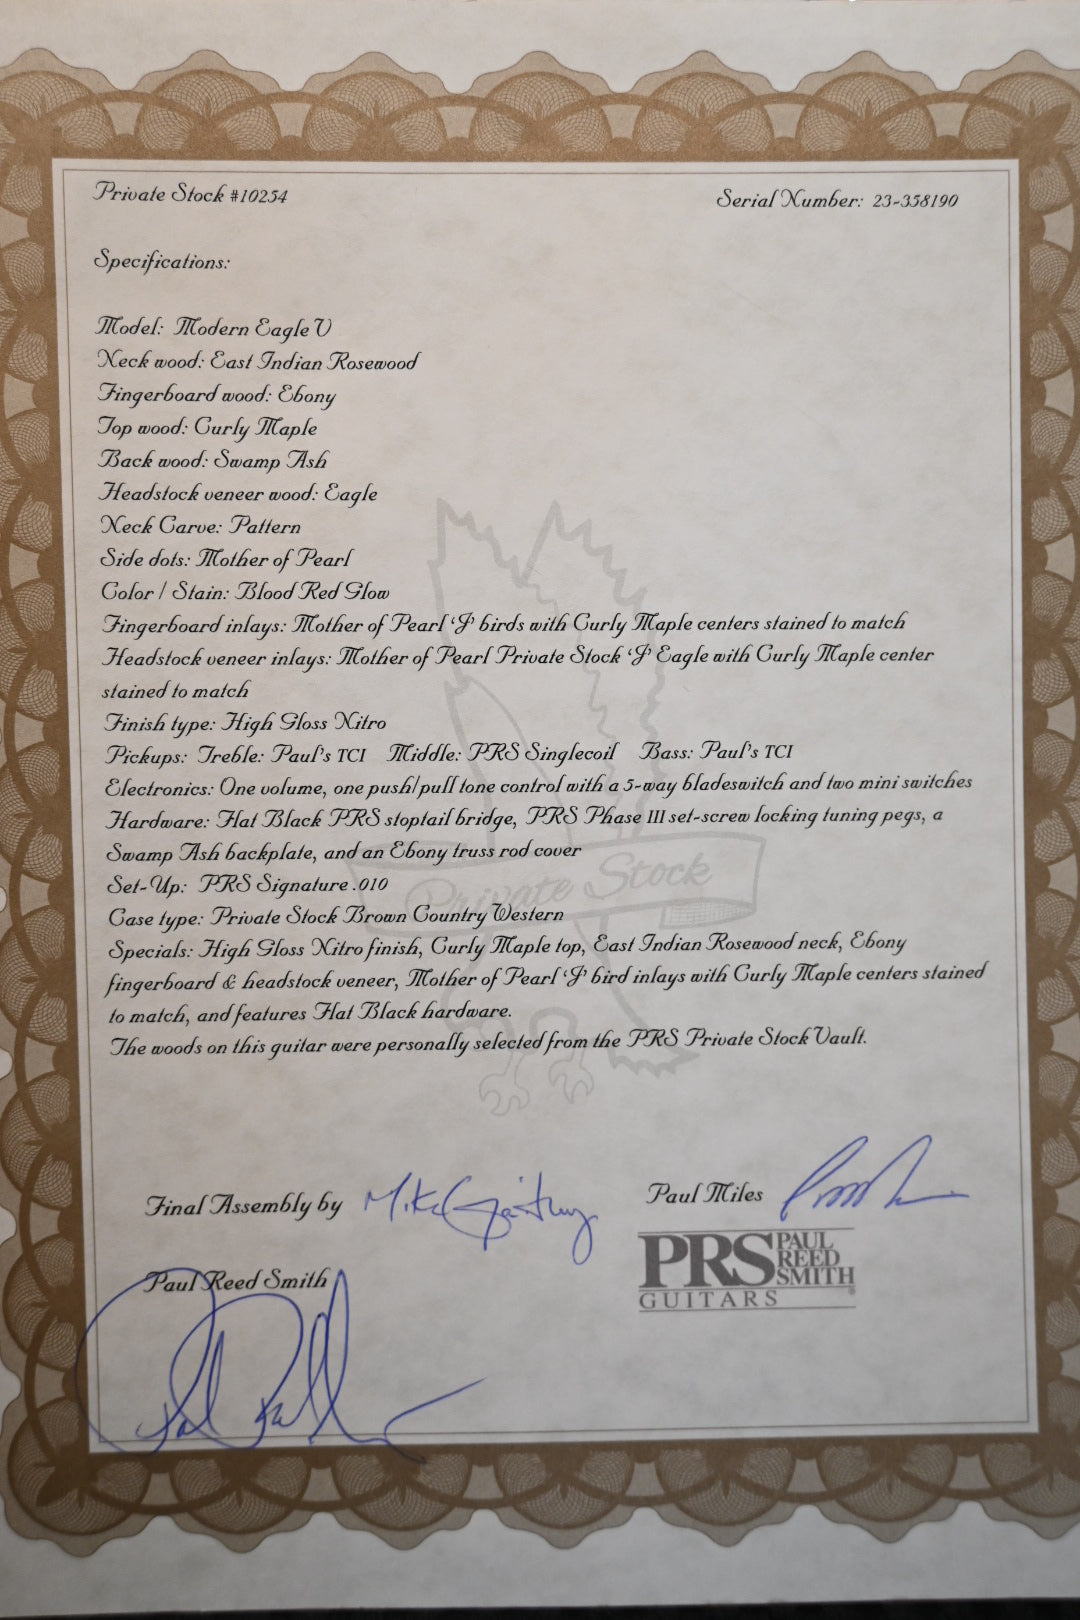 Private Stock #10254
Serial Number: 23-358190
Specifications:
Model: Modern Eagle V
Neck wood: East Indian Rosewood
Fingerboard wood: Ebony
Top wood: Curly Maple
Back wood: Swamp Ash
Headstock veneer wood: Eagle
Neck Carve: Pattern
Side dots: Mother of Pearl
Color / Stain: Blood Red Glow
Fingerboard inlays: Mother of Pearl ‘J’ birds with Curly Maple centers stained to match
Headstock veneer inlays: Mother of Pearl Private Stock ‘J’ Eagle with Curly Maple center
stained to match
Finish type: High Gloss Nitro
Pickups: Treble: Paul's TCI Middle: PRS Singlecoil Bass: Paul's TCI
Electronics: One volume, one push/pull tone control with a 5-way bladeswitch and two mini switches
Hardware: Flat Black PRS stoptail bridge, PRS Phase III set-screw locking tuning pegs, a
Swamp Ash backplate, and an Ebony truss rod cover
Set-Up: PRS Signature .010
Private Stock
Case type: Private Stock Brown Country Western
Specials: High Gloss Nitro finish, Curly Maple top, East Indian Rosewood neck, Ebony
fingerboard & headstock veneer, Mother of Pearl ‘J’ bird inlays with Curly Maple centers stained
to match, and features Flat Black hardware.
The woods on this guitar were personally selected from the PRS Private Stock Vault.
Final Assembly by Mike
Paul Miles
PRS PAUL REED SMITH
GUITARS
Paul Reed Smith